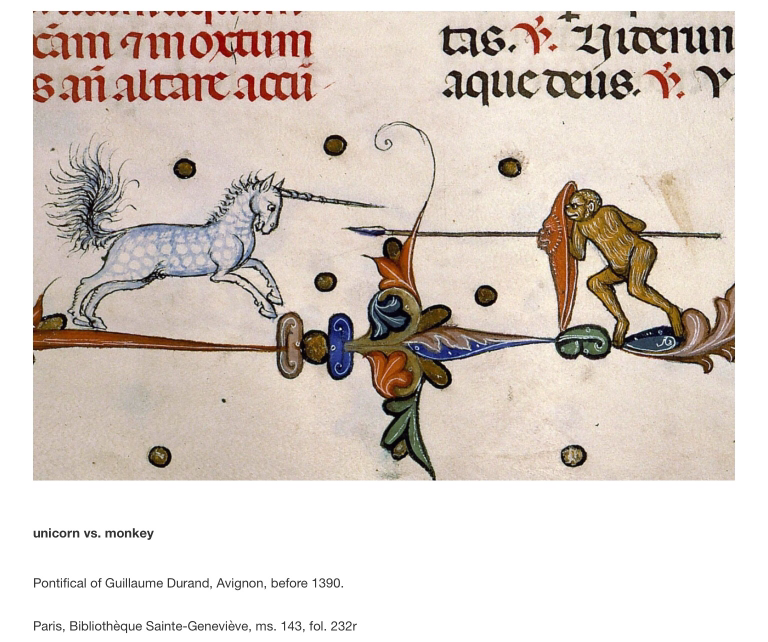 cam ⁊ mortim
s añ altare accū
tas. ꝟ. Yiderun
aque deus. ꝟ. V
unicorn vs. monkey
Pontifical of Guillaume Durand, Avignon, before 1390.
Paris, Bibliothèque Sainte-Geneviève, ms. 143, fol. 232r